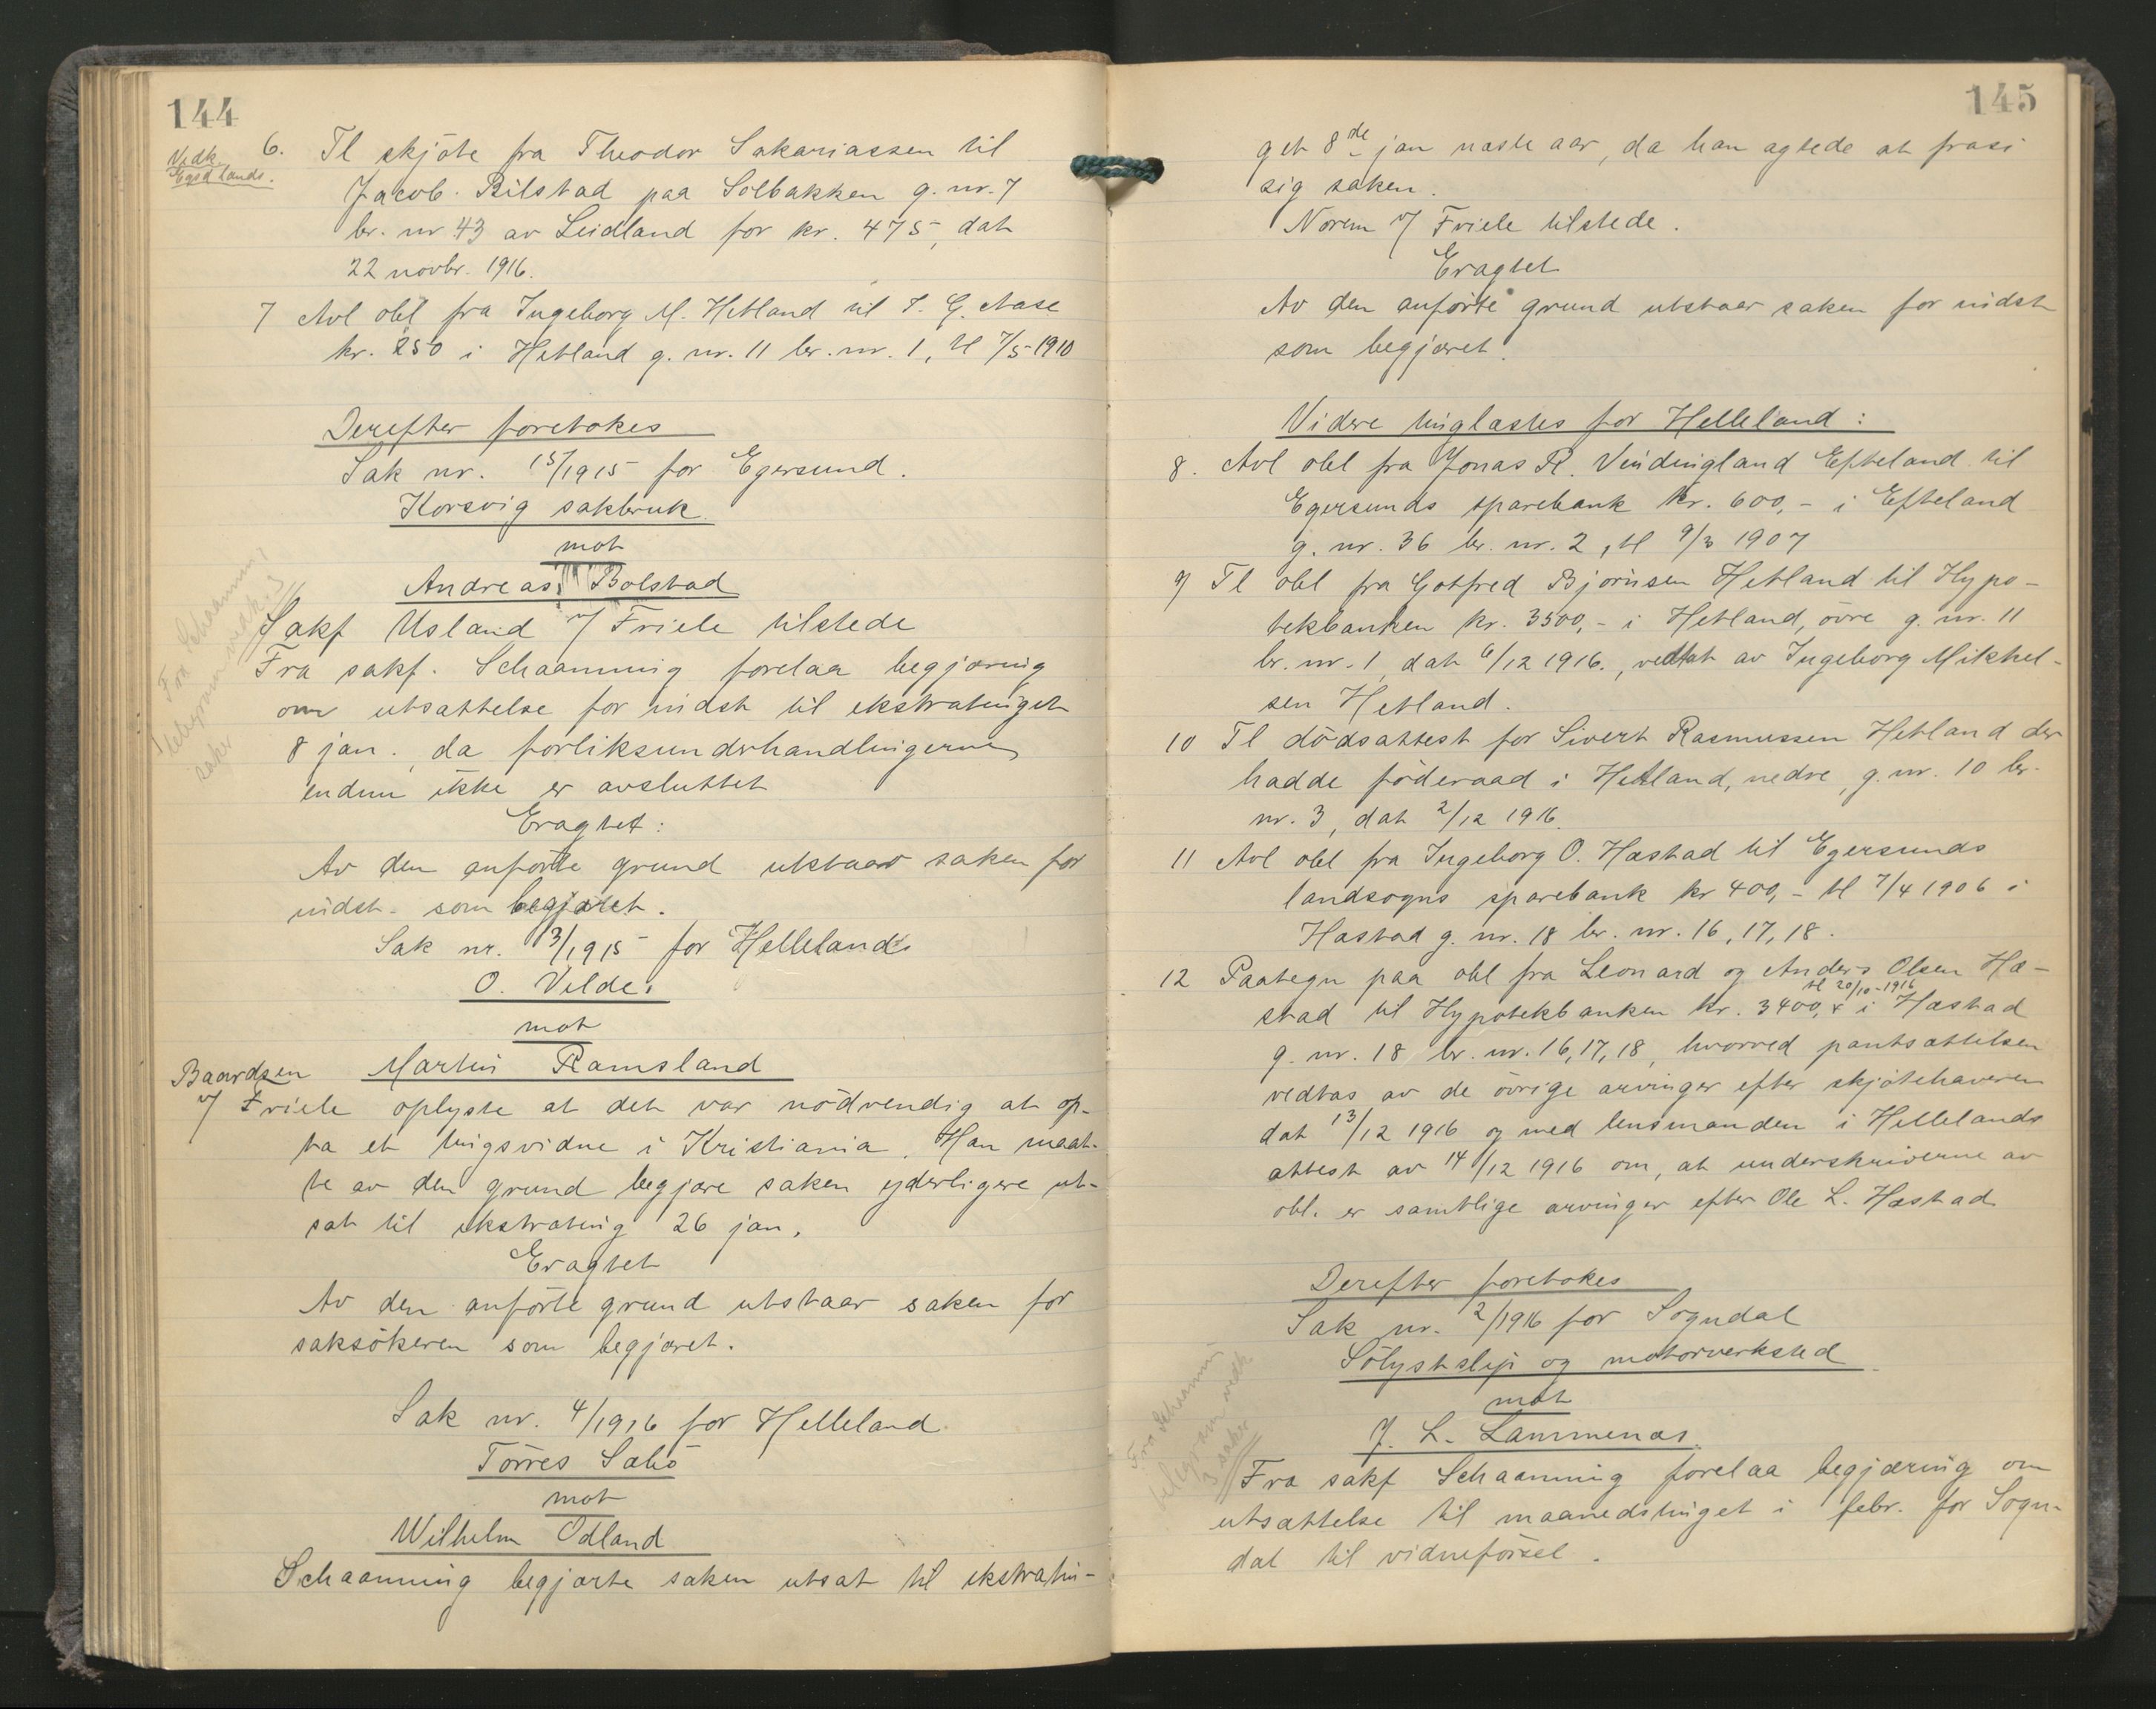 144
Vedk.
Egsd lands.
6. Tl skjöte fra Theodor Sakariassen til
Jacob Bilstad paa Solbakken g. nr. 7
br. nr 43 av Leidland for kr. 475, dat
22 novbr. 1916.
7 Avl obl fra Ingeborg M. Hetland til S. G. Aase
kr. 250 i Hetland g. nr. 11 br. nr. 1, tl 7/5 1910
Derefter foretokes
Sak nr. 15/1915 for Egersund.
Korsvig sakbruk
mot
Andreas Bolstad
Sakf Usland v/ Friele tilstede
Fra sakf. Schaanning forelaa begjæring
om utsættelse for indst til ekstratinget
8 jan., da forliksunderhandlingerne
endnu ikke er avsluttet
Eragtet:
Av den anförte grund utstaar saken for
indst. som begjæret.
Sak nr. 13/1915 for Helleland
O. Velde
mot
Martin Ramsland
Baardsen
v/ Friele oplyste at det var nödvendig at op-
ta et tingsvidne i Kristiania. Han maat-
te av den grund begjære saken yderligere ut-
sat til ekstrating 26 jan.
Eragtet
Av den anförte grund utstaar saken for
saksökeren som begjæret.
Sak nr. 4/1916 for Helleland
Törres Sæbö
mot
Wilhelm Ödland
Schaanning begjærte saken utsat til ekstratin-
Fra Schaanning
telegram vedk. 3
saker
145
get 8de jan næste aar, da han agtede at frasi
sig saken.
Norem v/ Friele tilstede.
Eragtet
Av den anförte grund utstaar saken for indst
som begjæret.
Videre tinglæstes for Helleland:
8. Avl obl fra Jonas R. Vindingland Efteland til
Egersunds sparebank kr. 600,- i Efteland
g. nr. 36 br. nr. 2, tl 9/3 1907
9 Tl obl fra Gotfred Björnsen Hetland til Hypo-
tekbanken kr. 3500,- i Hetland, övre g. nr. 11
br. nr. 1, dat 6/12 1916., vedtat av Ingeborg Mikkel-
sen Hetland.
10 Tl dödsattest for Sivert Rasmussen Hetland der
hadde föderaad i Hetland, nedre, g. nr. 10 br.
nr. 3, dat 2/12 1916.
11 Avl obl fra Ingeborg O. Hæstad til Egersunds
landsogns sparebank kr 400,- tl 7/4 1906 i
Hæstad g. nr. 18 br. nr. 16, 17, 18.
12 Paategn paa obl fra Leonard og Anders Olsen Hæ-
tl 20/10-1916
stad til Hypotekbanken kr. 3400, i Hæstad
g. nr. 18 br. nr. 16, 17, 18, hvorved pantsættelsen
vedtas av de övrige arvinger efter skjötehaveren
dat 13/12 1916 og med lensmanden i Hellelands
attest av 14/12 1916 om, at underskriverne av
obl. er samtlige arvinger efter Ole L. Hæstad
Derefter foretokes
Sak nr. 2/1916 for Sogndal
Sölystslip og motorverksted
mot
J. L. Lammenæs
Fra sakf Schaanning forelaa begjæring om
utsættelse til maanedstinget i febr. for Sogn-
dal til vidneförsel.
Fra Schaanning
telegram vedk.
3 saker